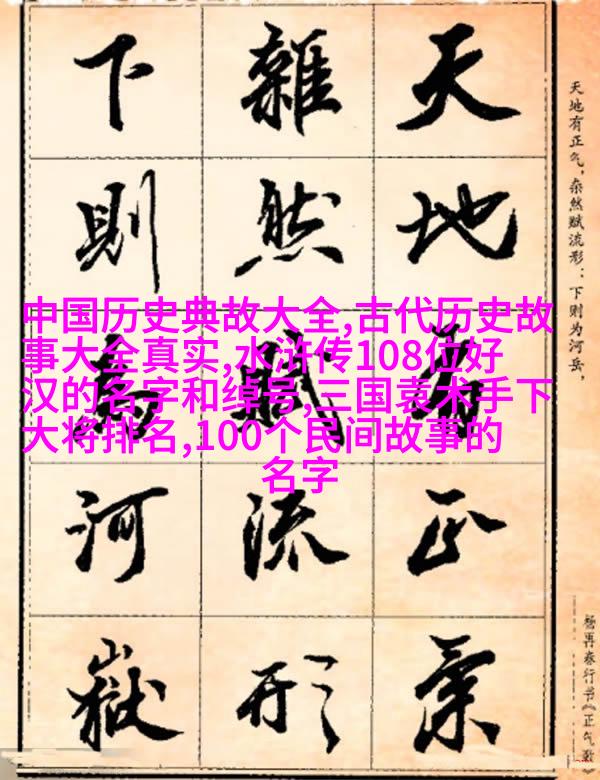 天地有正气，杂然赋流形：下则为河岳，
天地有正氣
雜然賦流形
下則為河嶽
中国历史典故大全,古代历史故
事大全真实,水浒传108位好
汉的名字和绰号,三国袁术手下
大将排名,100个民间故事的
名字
杨再春行书《正气歌》